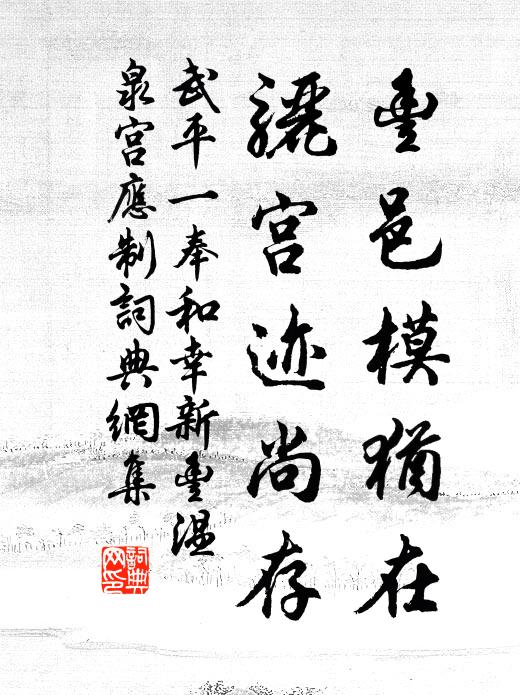 豊邑模猶在
驪宮迹尚存
武平一奉和幸新豊溫
泉宮應制詞典網集
詞典
网印